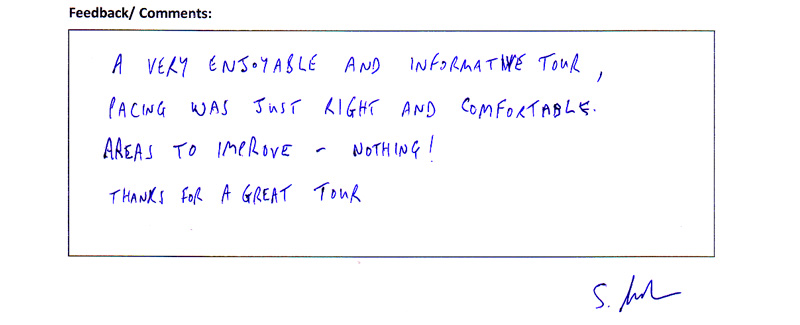 Feedback/ Comments:
A VERY ENJOYABLE AND INFORMATIVE TOUR,
PACING WAS JUST RIGHT AND COMFORTABLE.
AREAS TO IMPROVE – NOTHING!
THANKS FOR A GREAT TOUR
S.